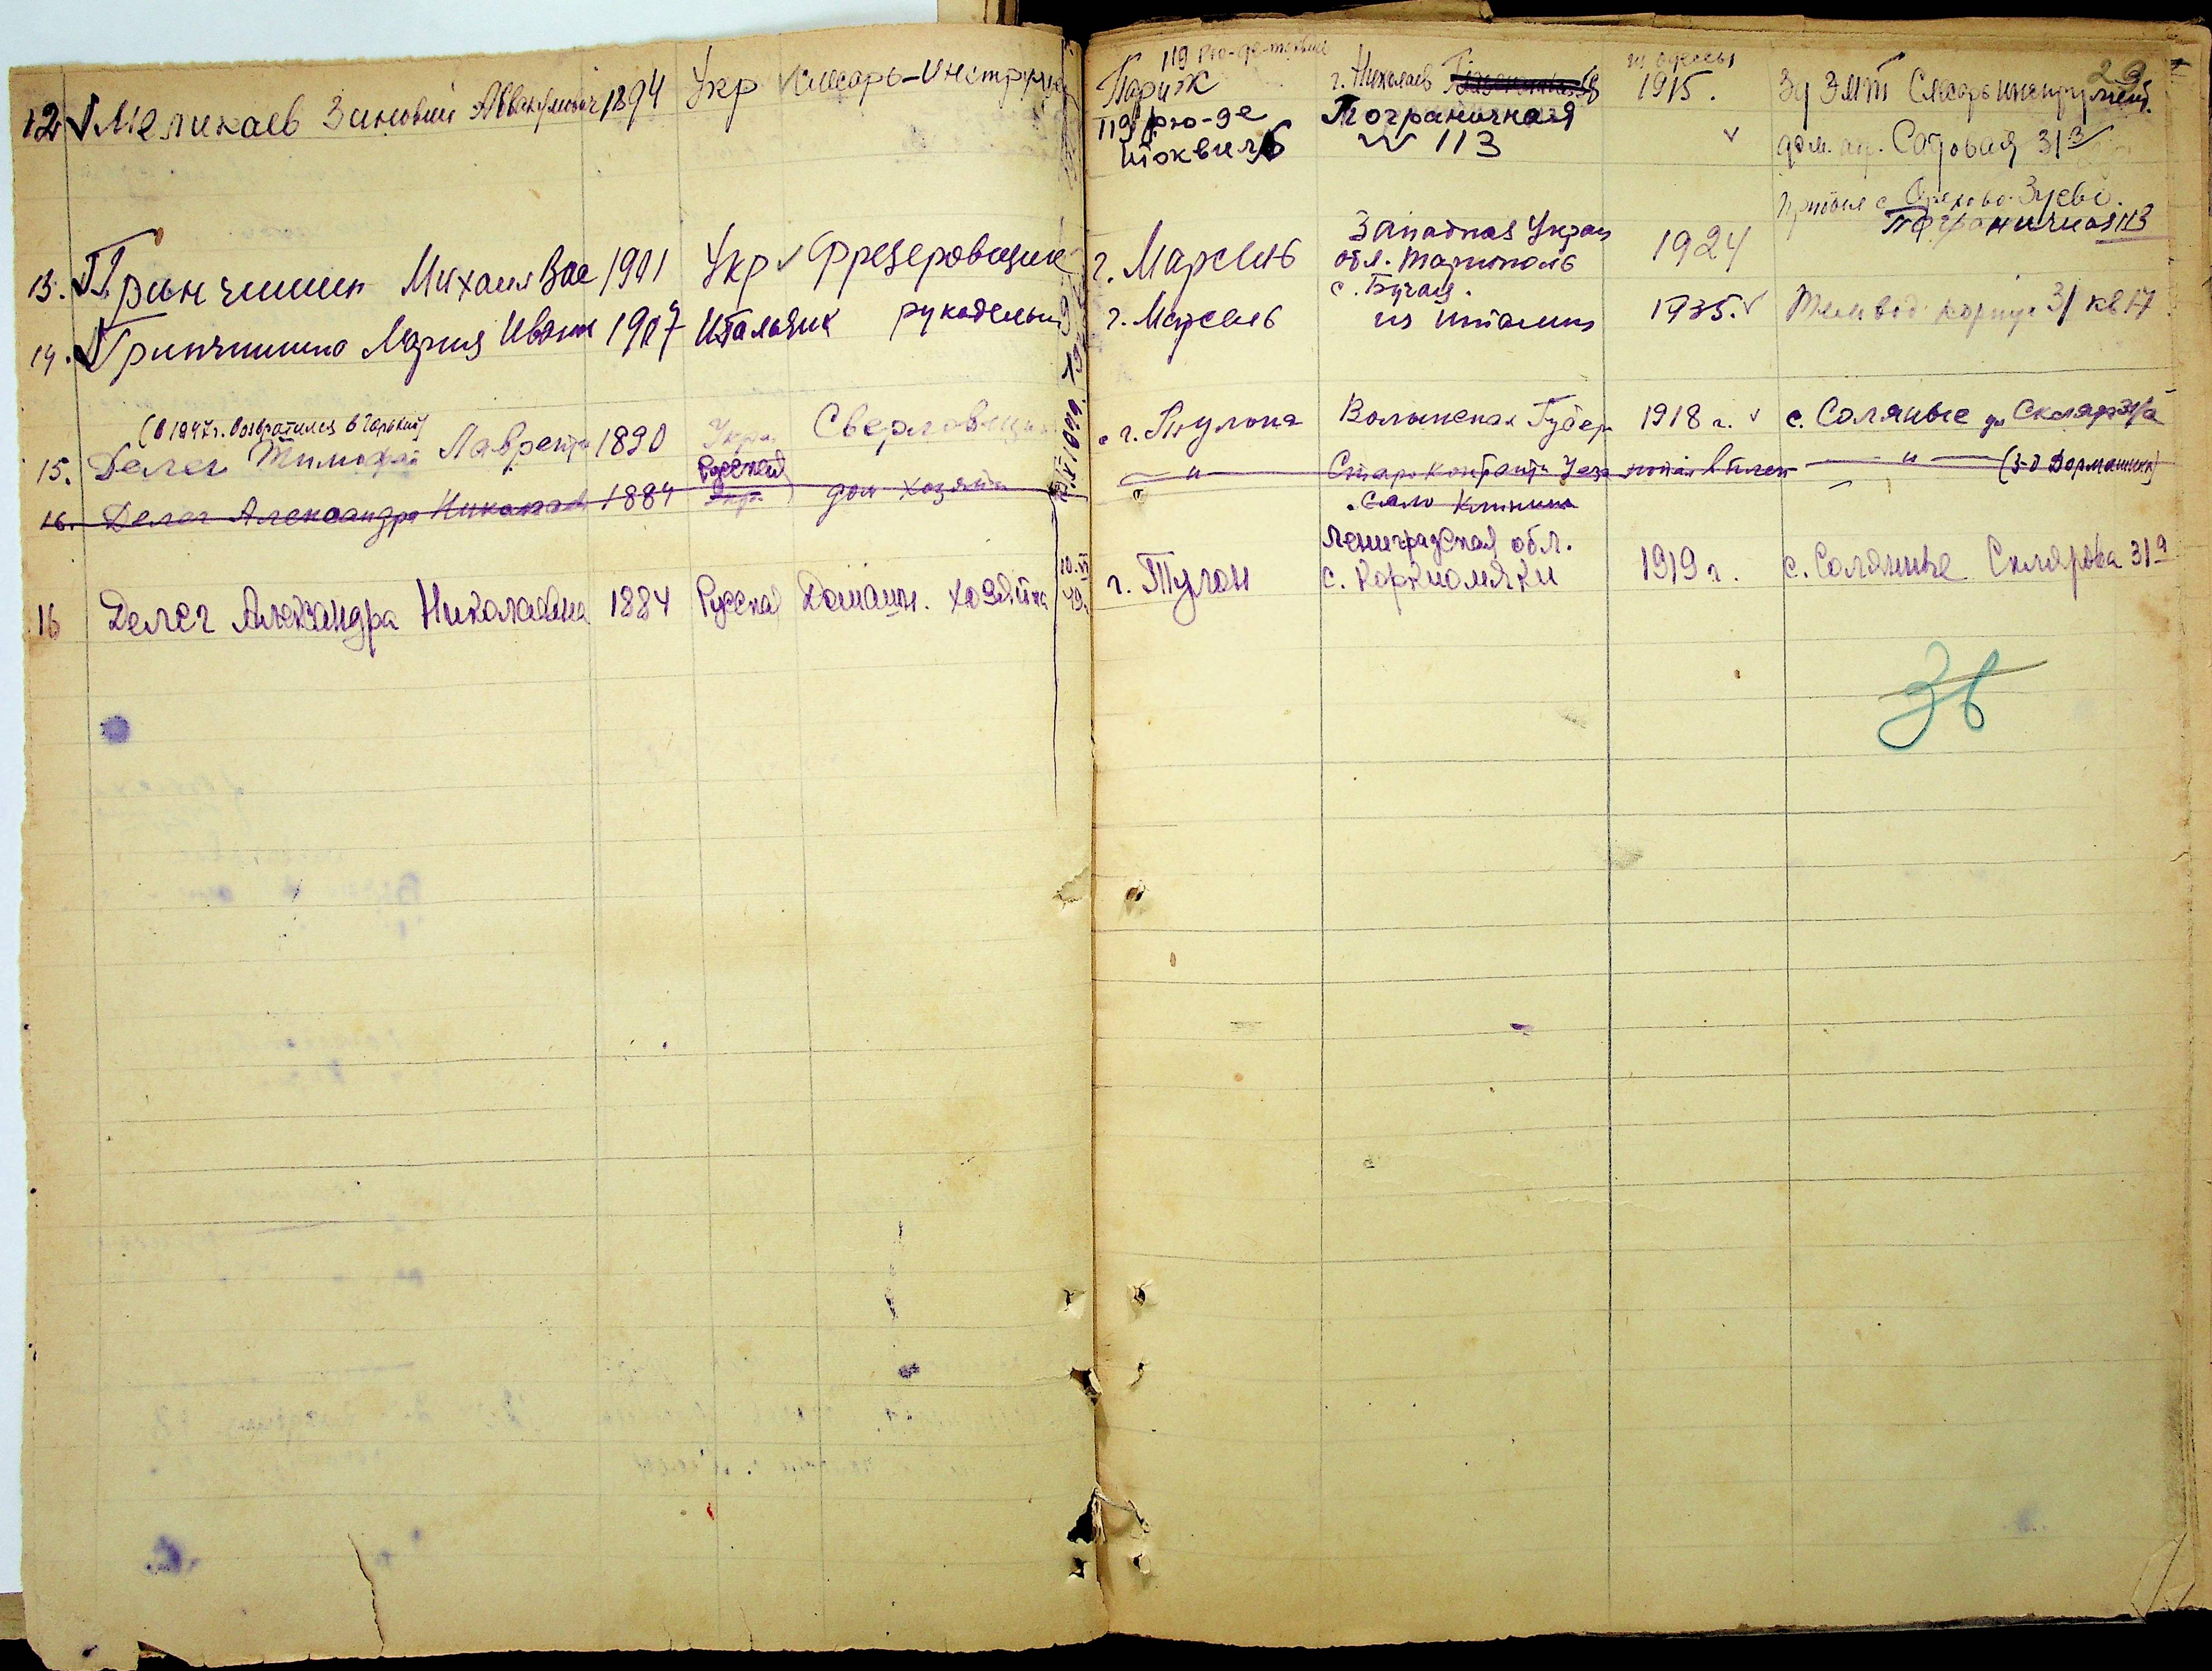 29
12 Меликаев Зиновий Аввакумович 1894 Укр слесарь-инструм
119 Рю-де-токвиль
Париж
119 рю-де
токвиль
г. Николаев
Пограничная
№ 113
из одессы
1915.
Зд ЭМТ Слесарь инструмент.
дом. ад. Садовая 31
Прибыл с Орехово-Зуево.
Пограничная 113
13. Гринчишин Михаил Вас 1901 Укр Фрезеровщик
г. Марсель
Западная Украин
обл. Тарнополь
с. Бучач.
1924
14. Гринчишина Мария Иван 1907 Итальянк рукодельн
г. Марсель из италии 1935. Темвод корпус 31 кв 17
(в 1947г. возвратился в Горький)
15. Делег Тимофей Лаврент 1890 Укр. Сверловщик
г. Тулона Волынская Губер 1918 г. с. Соляные ул Склярова
16. Делег Александра Николаев 1884 Русская Укр. дом хозяйка
— " — Староконстант Уезд попал в плен — " — (з-д Дормашина)
село
16 Делег Александра Николаевна 1884 Русская Домашн. хозяйка
10.XI 49.
г. Тулон
Ленинградская обл.
с. Коркиомяки
1919 г. с. Соляные Склярова 31а
38